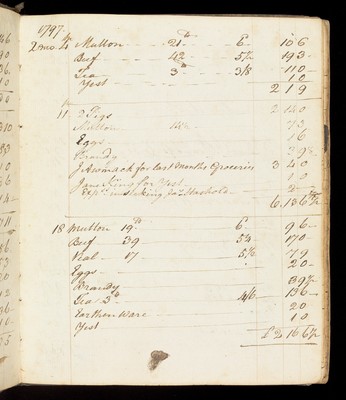 1797
2 mo. 4 Mutton - - 21 lb - - 6 - 10 6
Beef - - 42 - 5½ 19 3 -
Tea - - 3 lb - 3/8 11 0 -
Yest 1 0 -
2 1 9
11 2 Pigs 2 14 0
Mutton 7 3
Eggs 1 6
Brandy
for last months Groceries 3 4 0
Jane King for Yest 1 0
6. 13 6½
18 Mutton 19 lb 6 - 9 6 -
Beef 39 5¼ - 17 0 -
Veal - 17 5½ 7 9
Eggs - 2 0 -
Brandy 3 9½
Tea 3 lb 4/6 13 6 -
Earthen Ware - 2 0
Yest 1 0
£ 2 16 6½